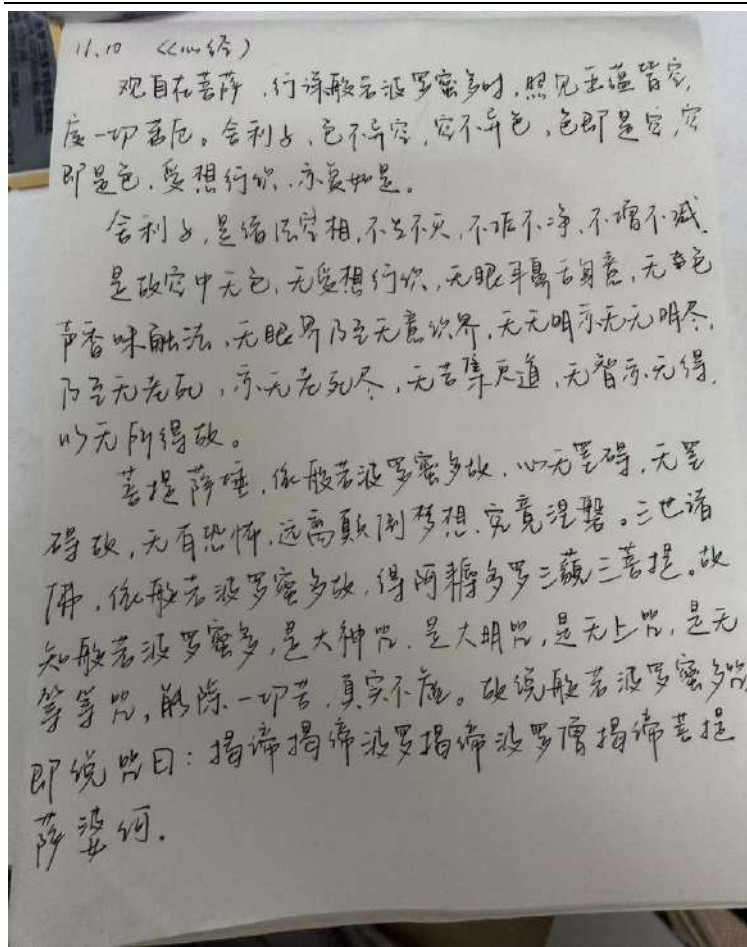 11.10 《心经》
观自在菩萨,行深般若波罗蜜多时,照见五蕴皆空,
度一切苦厄。舍利子,色不异空,空不异色,色即是空,空
即是色,受想行识,亦复如是。
舍利子,是诸法空相,不生不灭,不垢不净,不增不减.
是故空中无色,无受想行识,无眼耳鼻舌身意,无色
声香味触法,无眼界乃至无意识界,无无明亦无无明尽,
乃至无老死,亦无老死尽,无苦集灭道,无智亦无得,
以无所得故。
菩提萨埵,依般若波罗蜜多故,心无罣碍,无罣
碍故,无有恐怖,远离颠倒梦想,究竟涅磐。三世诸
佛,依般若波罗蜜多故,得阿耨多罗三藐三菩提。故
知般若波罗蜜多,是大神咒,是大明咒,是无上咒,是无
等等咒,能除一切苦,真实不虚。故说般若波罗蜜多咒
即说咒曰:揭谛揭谛波罗揭谛波罗僧揭谛菩提
萨婆诃.